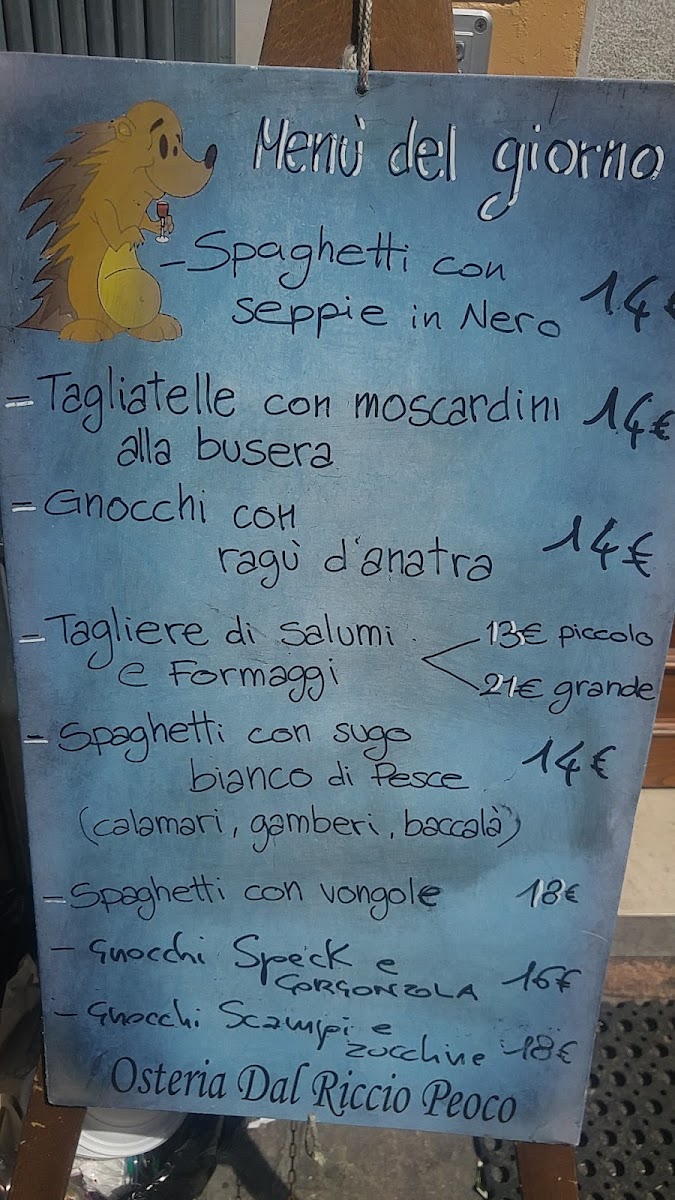 Menù del giorno
- Spaghetti con
seppie in Nero 14€
- Tagliatelle con moscardini 14€
alla busera
- Gnocchi con
ragù d'anatra 14€
- Tagliere di Salumi 13€ piccolo
e Formaggi 21€ grande
- Spaghetti con sugo
bianco di Pesce 14€
(calamari, gamberi, baccalà)
- Spaghetti con vongole 18€
- Gnocchi Speck e
GORGONZOLA 16€
- Gnocchi Scampi e
zucchine 18€
Osteria Dal Riccio Peoco